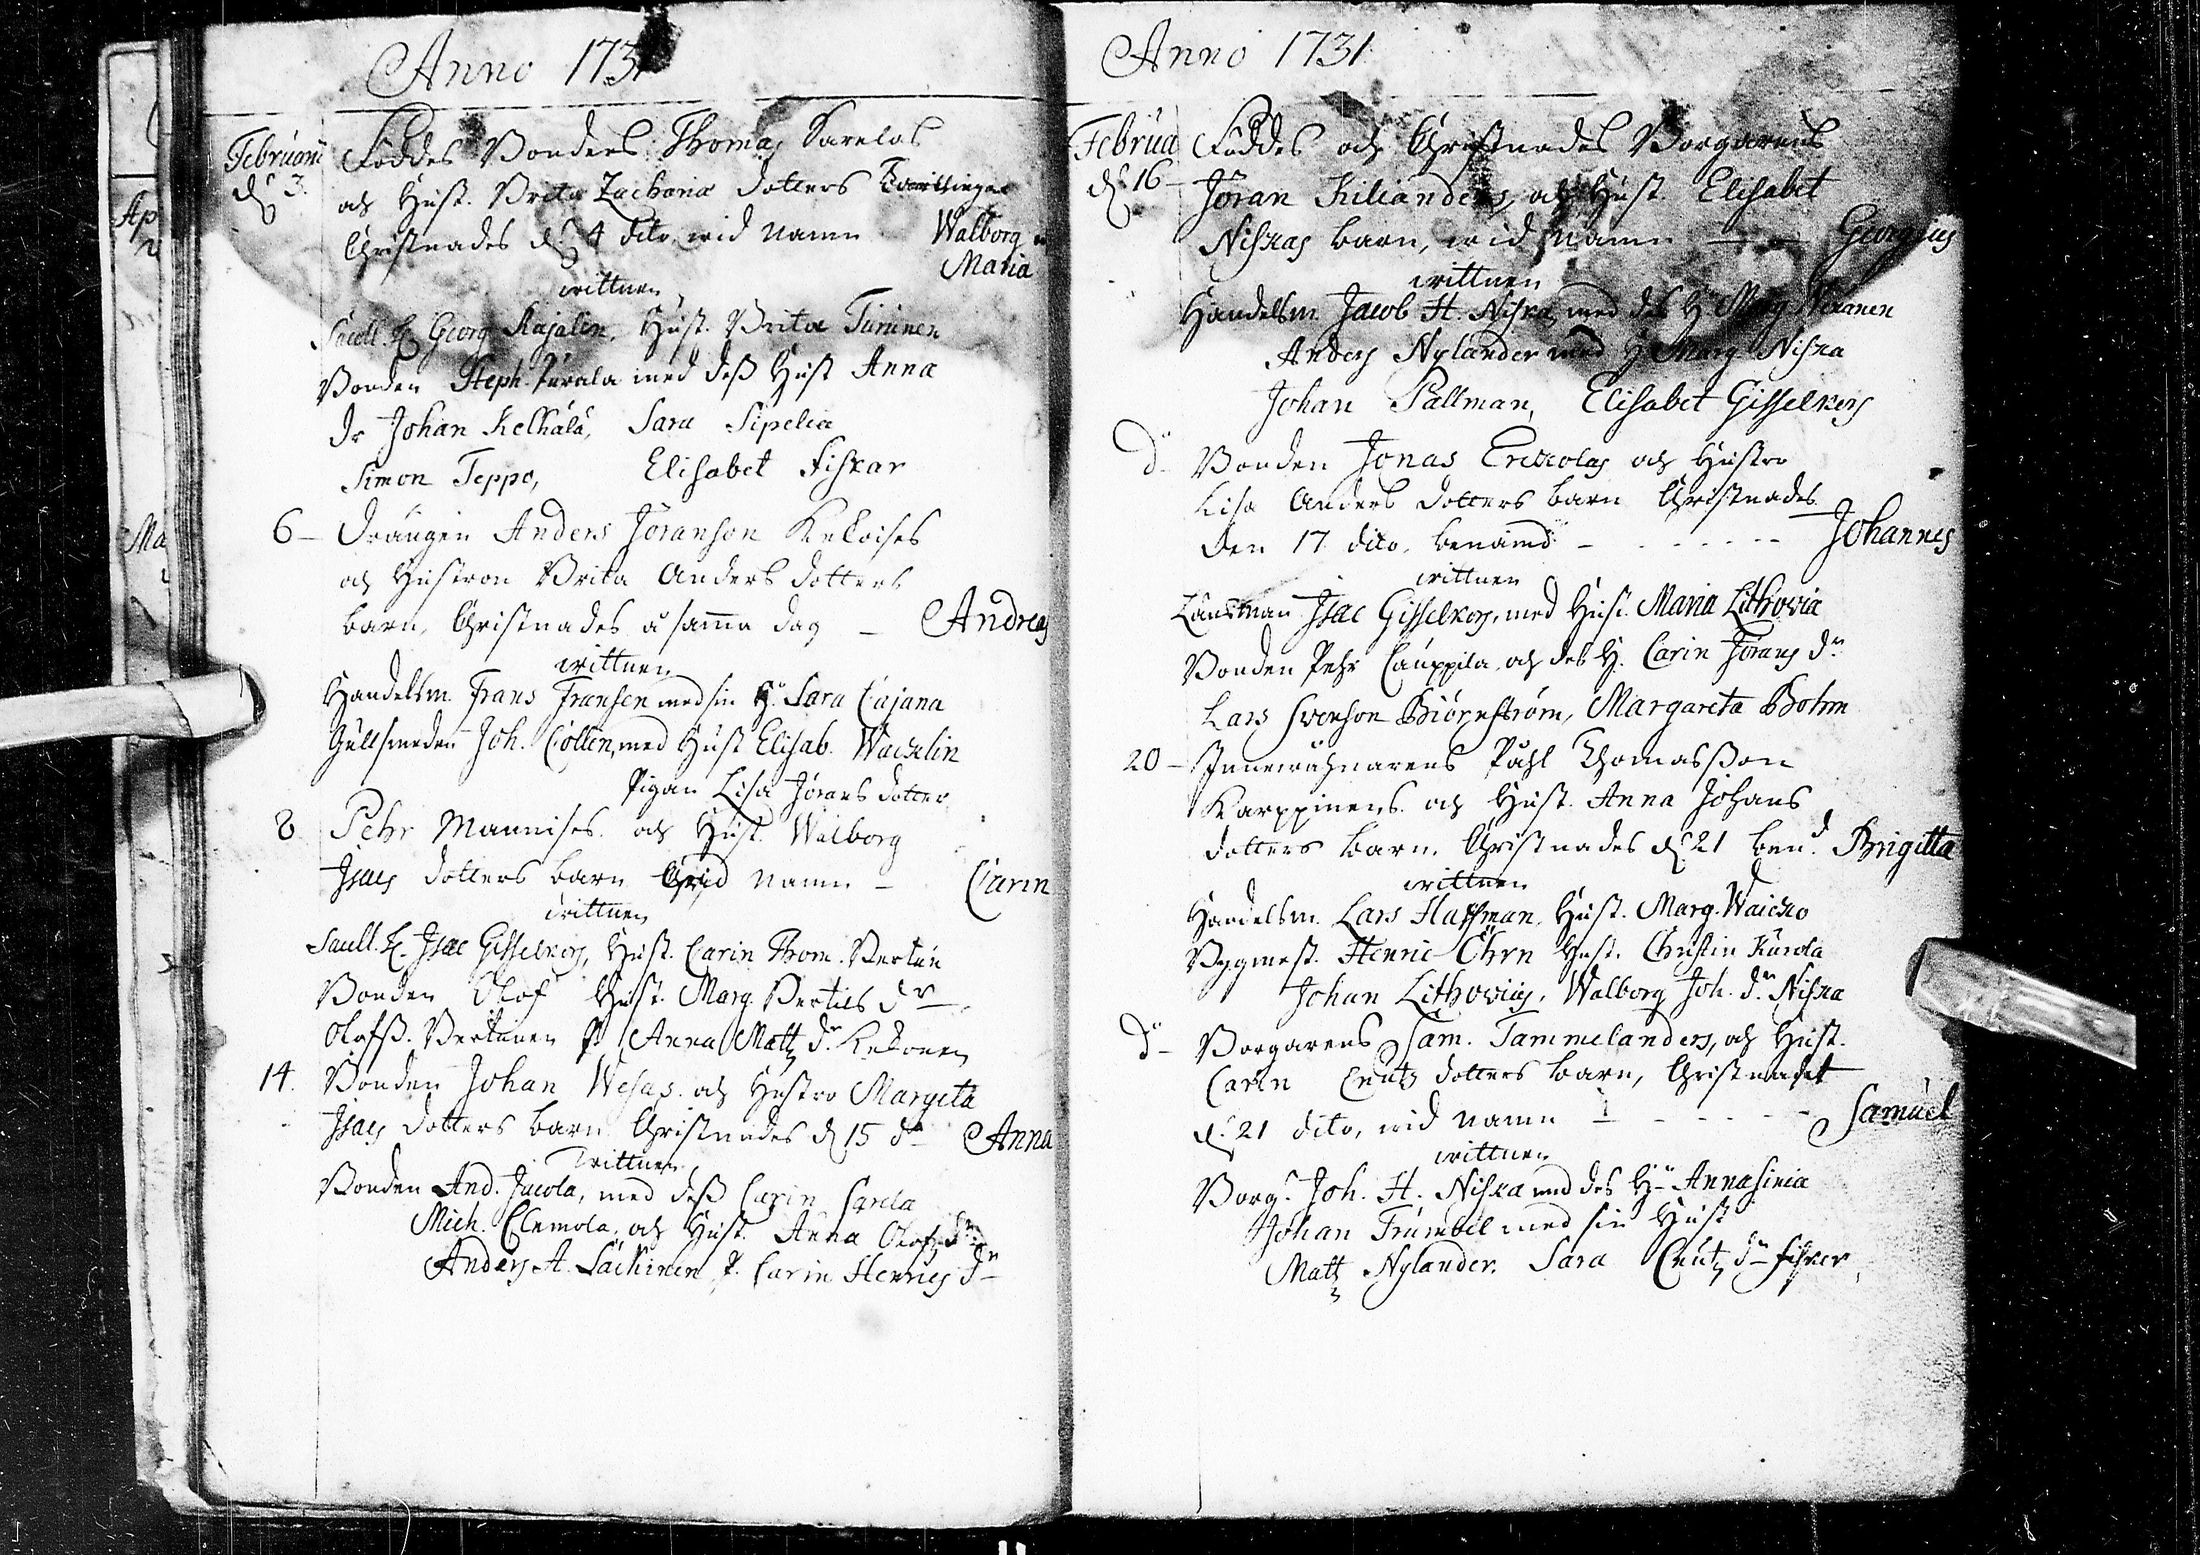 Anno 1731
Februarii Föddes Bondens Thomas Sarelas
d. 3. och Hust. Brita Zachariæ dotters Twillingar
Christnades d. 4 dito, wid Namn Walborg
Maria
wittnen
Georg Kajalen. Hust. Brita Turunen
Bonden Steph. Jurala med dess Hust Anna
Dr Johan Kelhälä, Sara Sipelia
Simon Teppo, Elisabet Fiskar
6 – Drängen Anders Jöranson Keloises
och Hustron Brita Anders dotters
barn, Christnades å samma dag – Andreas
wittnen
Handelsm. Frans Fransen med sin H. Sara Cajana
Gullsmeden Joh. Collin, med Hust Elisab. Wacklin
Pigan Lisa Jörans dotter
8 Pehr Mannises och Hust. Walborg
Isacs dotters barn wid namn – Carin
wittnen
Isac Gisselkors, Hust. Carin Thom.
Bonden Olof Hust. Marg. Bertils dr
Olofss. P. Anna Matts dr Kekonen
14. Bonden Johan Wesas och Hustro Margeta
Isacs dotters barn Christnades d 15 do Anna
Wittnen
Bonden And. Jacola, med dess Carin Sarela
Mich. Clemola, och Hust. Anna Olofs dr
Anders A. Lackinen, P. Carin Henrics dr
Anno 1731
Februa Föddes och Christnades Borgarens
d. 16 – Jöran Kilianders, och Hust. Elisabet
Niskas barn, wid Namn – Georgius
wittnen
Handelsm. Jacob H. Niska, med des H Marg
Anders Nylander med H Marg Niska
Johan Pallman, Elisabet Gisselkors
do Bonden Jonas Erckolas och Hustro
Lisa Anders dotters barn Christnades
den 17 dito. benämd – Johannes
wittnen
Länsman Isac Gisselkors, med Hust. Maria Lithovia
Bonden Pehr Cauppila och des H. Carin Jörans dr
Lars Svenson Biörnström, Margareta Bohm
20 – Påhl Thomasson
Karppinens och Hust. Anna Johans
dotters barn. Christnades d 21 bend. Brigitta
wittnen
Handelsm. Lars Huffman, Hust. Marg. Waicko
Bygmest. Henric Öhrn Hust. Christin Kurola
Johan Lithovius, Walborg Joh. dr Niska
do – Borgarens Sam. Tammelanders, och Hust.
Carin Cnuts dotters barn, Christnadt
d. 21 dito, wid Namn – Samuel
wittnen
Borg. Joh. H. Niska med des H Anna Sinia
Johan Trumbel med sin Hust
Matts Nylander. Sara Cnuts dr Fisker